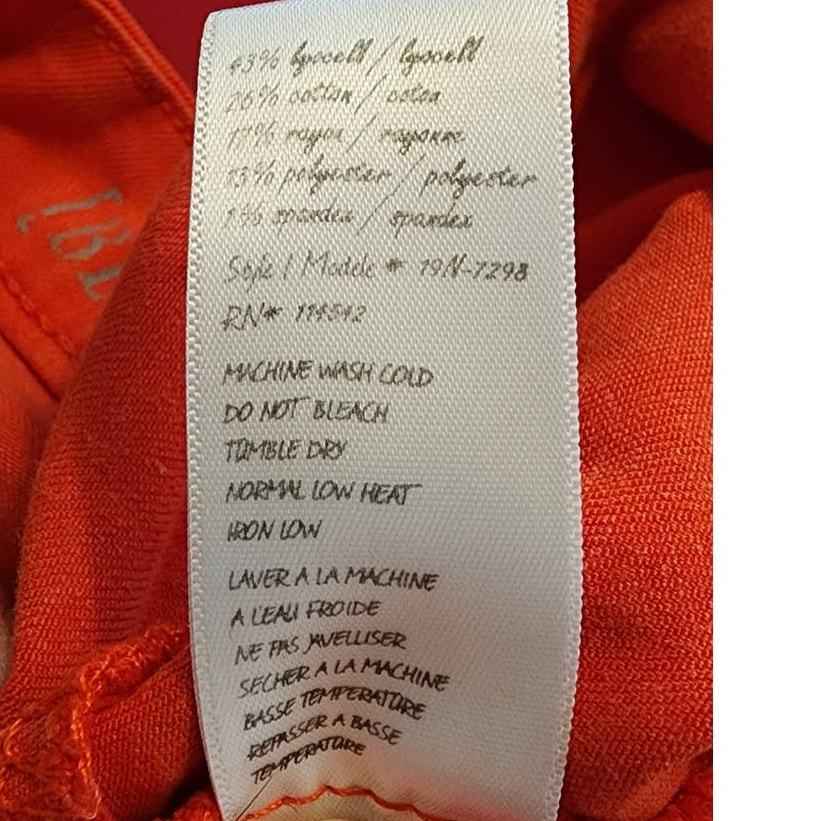 43% lyocell / lyocell
26% cotton / coton
17% rayon / rayonne
13% polyester / polyester
1% spandex / spandex
Style / Modele # 19N-7298
RN# 114542
MACHINE WASH COLD
DO NOT BLEACH
TUMBLE DRY
NORMAL LOW HEAT
IRON LOW
LAVER A LA MACHINE
A L'EAU FROIDE
NE PAS JAVELLISER
SECHER A LA MACHINE
BASSE TEMPERATURE
REPASSER A BASSE
TEMPERATURE